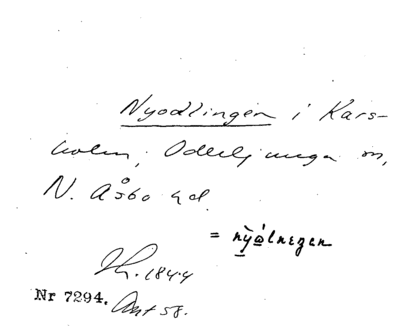 Nyodlingen i Kars-
holm, Oderljunga sn,
N. Åsbo hd.
= nỳólnegen
1844
Nr 7294. Ant 58.